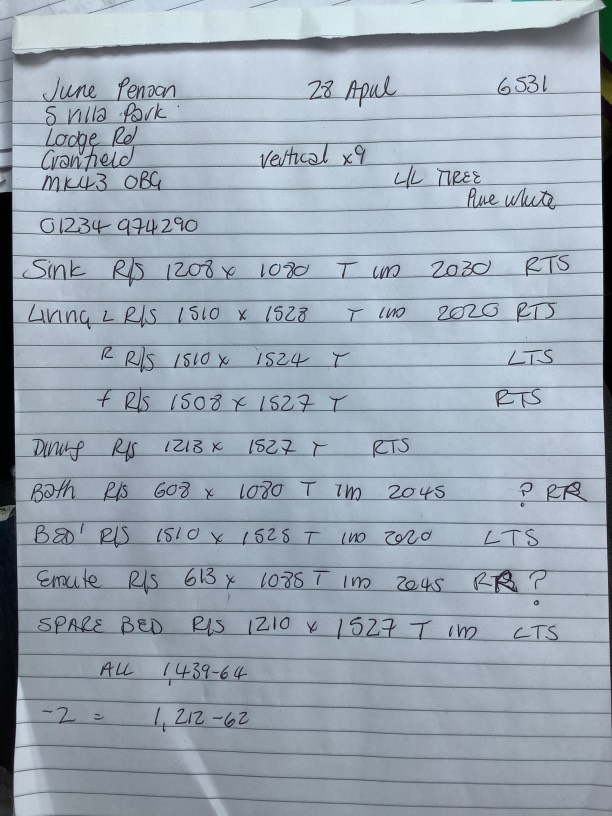 June Penson 28 April 6531
5 Villa Park
Lodge Rd
Cranfield Vertical x9
MK43 0BG L/L TREE
Pure White
01234 974290
Sink R/S 1208 x 1080 T im 2030 RTS
Living L R/S 1510 x 1528 T im 2020 RTS
R R/S 1510 x 1524 T LTS
f R/S 1508 x 1527 T RTS
Dining R/S 1213 x 1527 T RTS
Bath R/S 608 x 1080 T im 2045 ? RR
BED' R/S 1510 x 1525 T im 2020 LTS
Ensuite R/S 613 x 1085 T im 2045 RR ?
SPARE BED R/S 1210 x 1527 T im LTS
ALL 1,439-64
-2 = 1,212-62